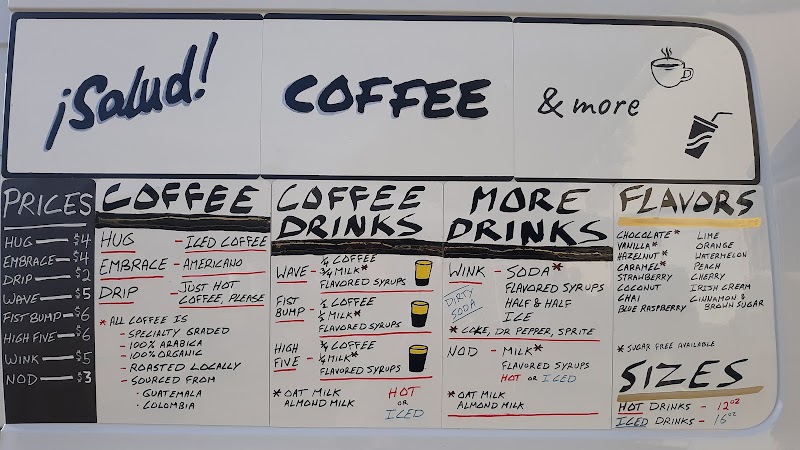 ¡Salud!
COFFEE
& more
PRICES
HUG — $4
EMBRACE — $4
DRIP — $2
WAVE — $5
FIST BUMP — $6
HIGH FIVE — $6
WINK — $5
NOD — $3
COFFEE
HUG - ICED COFFEE
EMBRACE - AMERICANO
DRIP - JUST HOT
COFFEE, PLEASE
* ALL COFFEE IS
- SPECIALTY GRADED
- 100% ARABICA
- 100% ORGANIC
- ROASTED LOCALLY
- SOURCED FROM
- GUATEMALA
- COLOMBIA
COFFEE
DRINKS
¼ COFFEE
WAVE - ¾ MILK*
FLAVORED SYRUPS
FIST
BUMP -
COFFEE
MILK*
FLAVORED SYRUPS
HIGH
FIVE -
COFFEE
MILK*
FLAVORED SYRUPS
* OAT MILK
ALMOND MILK
HOT
OR
ICED
MORE
DRINKS
WINK - SODA*
FLAVORED SYRUPS
HALF & HALF
ICE
DIRTY
SODA
* COKE, DR PEPPER, SPRITE
NOD - MILK*
FLAVORED SYRUPS
HOT OR ICED
* OAT MILK
ALMOND MILK
FLAVORS
CHOCOLATE*
VANILLA*
HAZELNUT*
CARAMEL*
STRAWBERRY
COCONUT
CHAI
BLUE RASPBERRY
LIME
ORANGE
WATERMELON
PEACH
CHERRY
IRISH CREAM
CINNAMON &
BROWN SUGAR
* SUGAR FREE AVAILABLE
SIZES
HOT DRINKS - 12oz
ICED DRINKS - 16oz